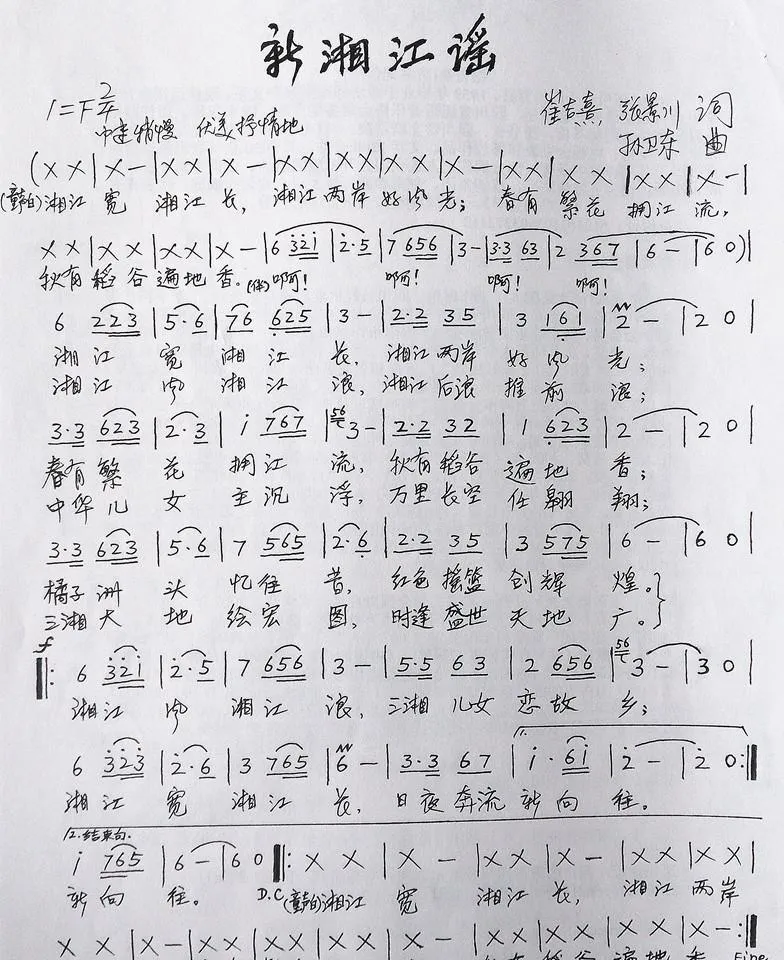 新湘江谣
1=F 2/4
中速稍慢 优美抒情地
崔吉熹、张景川 词
孙卫东 曲
(X X | X - | X X | X - | X X | X X | X X | X - | X X | X X | X X | X - |
(童白)湘江 宽 湘江 长, 湘江 两岸 好风 光; 春有 繁花 拥江 流,
X X | X X | X X | X - | 6 3̇2̇1̇ | 2̇·5 | 7 656 | 3 - | 3·3 63 | 2 367 | 6 - | 6 0 ) |
秋有 稻谷 遍地 香。(伴)啊! 啊! 啊! 啊!
6 223 | 5·6 | 76 625 | 3 - | 2·2 35 | 3 161 | 2 - | 2 0 |
湘江 宽 湘江 长, 湘江两岸 好风 光;
湘江 风 湘江 浪, 湘江后浪 推前 浪;
3·3 623 | 2·3 | i 767 | 56 3 - | 2·2 32 | 1 623 | 2 - | 2 0 |
春有繁 花 拥江 流, 秋有稻谷 遍地 香;
中华儿 女 主沉 浮, 万里长空 任翱 翔;
3·3 623 | 5·6 | 7 565 | 2·6 | 2·2 35 | 3 575 | 6 - | 6 0 |
橘子洲 头 忆往 昔, 红色摇篮 创辉 煌。}
三湘大 地 绘宏 图, 时逢盛世 天地 广。}
f
‖: 6 3̇2̇1̇ | 2̇·5 | 7 656 | 3 - | 5·5 63 | 2 656 | 56 3 - | 3 0 |
湘江 风 湘江 浪, 三湘 儿女 恋故 乡;
6 3̇2̇3̇ | 2̇·6 | 3 765 | 6 - | 3·3 67 | i·6i | 2̇ - | 2̇ 0 :‖
湘江 宽 湘江 长, 日夜奔流 新向 往。
12.结束句.
i 765 | 6 - | 6 0 ‖: X X | X - | X X | X - | X X | X X |
新向 往。 D.C (童白)湘江 宽 湘江 长, 湘江 两岸
X X | X - | X X | X X | X X | X - | X X | X X | X X | X - :‖
秋有 稻谷 遍地 香 Fine